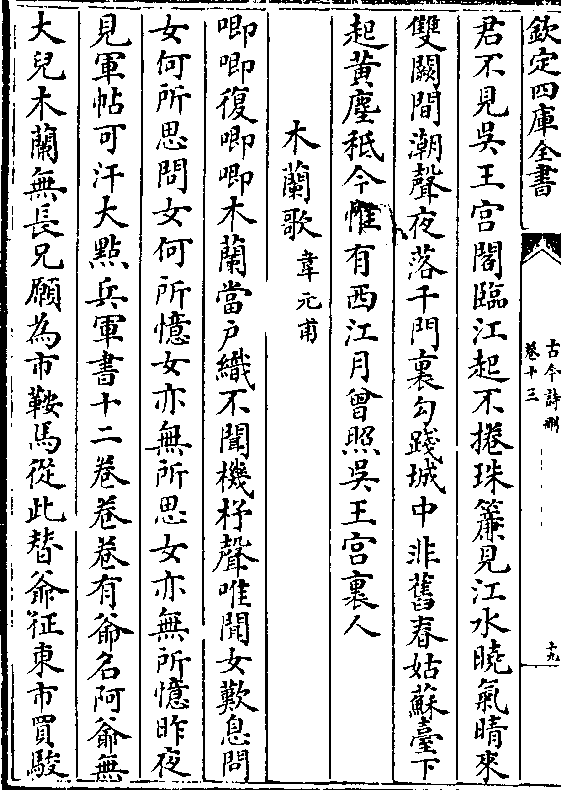 欽定四庫全書
古今詩刪
卷十三
十九
君不見吳王宮閣臨江起不捲珠簾見江水曉氣晴來
雙闕間潮聲夜落千門裏勾踐城中非舊春姑蘇臺下
起黃塵秪今惟有西江月曾照吳王宮裏人
木蘭歌 韋元甫
唧唧復唧唧木蘭當戶織不聞機杼聲唯聞女歎息問
女何所思問女何所憶女亦無所思女亦無所憶昨夜
見軍帖可汗大點兵軍書十二卷卷卷有爺名阿爺無
大兒木蘭無長兄願為市鞍馬從此替爺征東市買駿